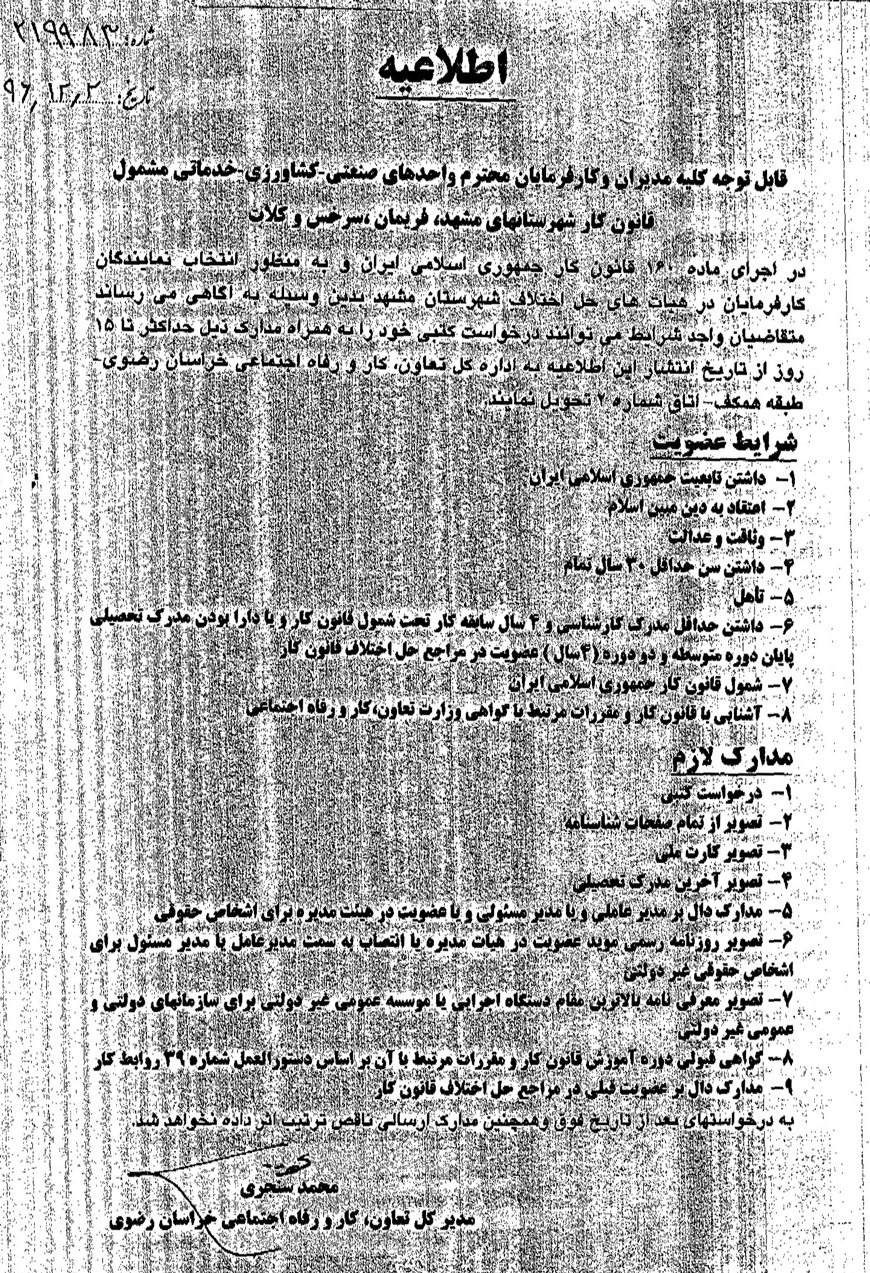 شماره: ۲۱۹۹۸۳
تاریخ: ۹۶/۱۲/۲
اطلاعیه
قابل توجه کلیه مدیران وکارفرمایان محترم واحدهای صنعتی-کشاورزی-خدماتی مشمول
قانون کار شهرستانهای مشهد، فریمان ،سرخس و کلات
در اجرای ماده ۱۶۰ قانون کار جمهوری اسلامی ایران و به منظور انتخاب نمایندگان
کارفرمایان در هیات های حل اختلاف شهرستان مشهد بدین وسیله به آگاهی می رساند
متقاضیان واجد شرایط می توانند درخواست کتبی خود را به همراه مدارک ذیل حداکثر تا ۱۵
روز از تاریخ انتشار این اطلاعیه به اداره کل تعاون، کار و رفاه اجتماعی خراسان رضوی-
طبقه همکف- اتاق شماره ۲ تحویل نمایند.
شرایط عضویت
۱- داشتن تابعیت جمهوری اسلامی ایران
۲- اعتقاد به دین مبین اسلام
۳- وثاقت و عدالت
۴- داشتن سن حداقل ۳۰ سال تمام
۵- تأهل
۶- داشتن حداقل مدرک کارشناسی و ۴ سال سابقه کار تحت شمول قانون کار و یا دارا بودن مدرک تحصیلی
پایان دوره متوسطه و دو دوره (۴سال ) عضویت در مراجع حل اختلاف قانون کار
۷- شمول قانون کار جمهوری اسلامی ایران
۸- آشنایی با قانون کار و مقررات مرتبط با گواهی وزارت تعاون،کار و رفاه اجتماعی
مدارک لازم
۱- درخواست کتبی
۲- تصویر از تمام صفحات شناسنامه
۳- تصویر کارت ملی
۴- تصویر آخرین مدرک تحصیلی
۵- مدارک دال بر مدیر عاملی و یا مدیر مسئولی و یا عضویت در هیئت مدیره برای اشخاص حقوقی
۶- تصویر روزنامه رسمی موید عضویت در هیات مدیره یا انتصاب به سمت مدیرعامل یا مدیر مسئول برای
اشخاص حقوقی غیر دولتی
۷- تصویر معرفی نامه بالاترین مقام دستگاه اجرایی یا موسسه عمومی غیر دولتی برای سازمانهای دولتی و
عمومی غیر دولتی
۸- گواهی قبولی دوره آموزش قانون کار و مقررات مرتبط با آن بر اساس دستورالعمل شماره ۳۹ روابط کار
۹- مدارک دال بر عضویت قبلی در مراجع حل اختلاف قانون کار
به درخواستهای بعد از تاریخ فوق وهمچنین مدارک ارسالی ناقص ترتیب اثر داده نخواهد شد.
محمد سنجری
مدیر کل تعاون، کار و رفاه اجتماعی خراسان رضوی